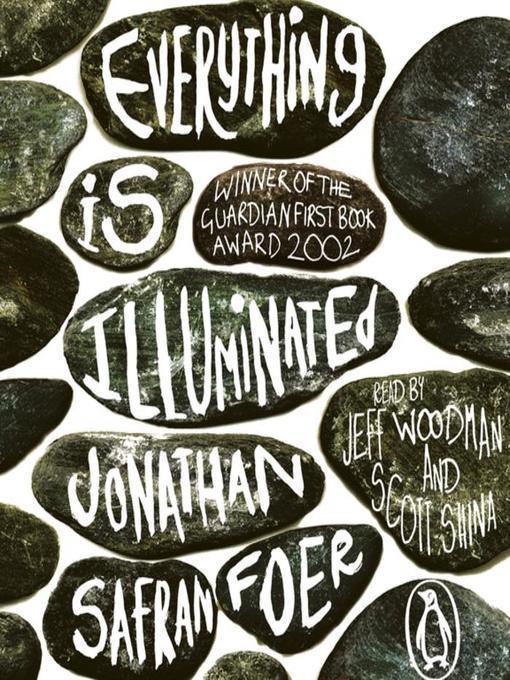 EVERYTHING
iS
WINNER OF THE
GUARDIAN FIRST BOOK
AWARD 2002
ILLUMiNATEd
READ BY
JEFF WOODMAN
AND
SCOTT SHINA
JONATHAN
SAFRAN
FOER